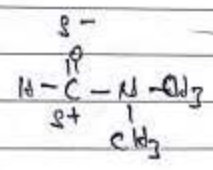 δ-
O
H-C-N-CH3
δ+
CH3